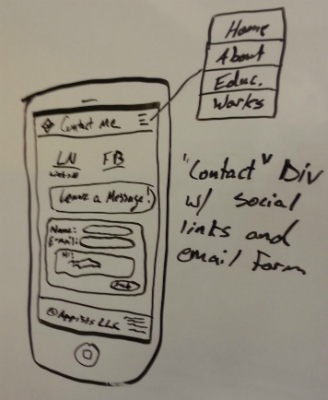 Home
About
Educ.
Works
Contact Me
LN FB
Leave a Message!
Name:
E-mail:
Hi!
"Contact" Div
w/ social
links and
email form